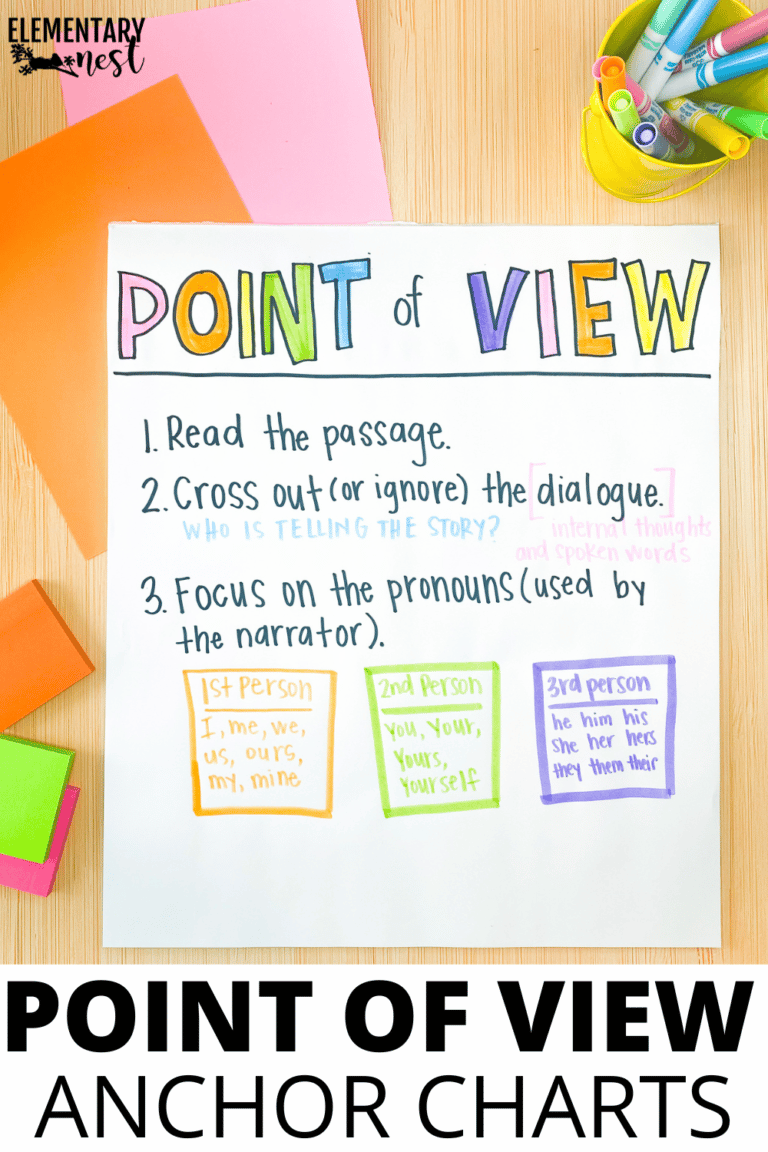 ELEMENTARY
nest
POINT of VIEW
1. Read the passage.
2. Cross out (or ignore) the [dialogue.]
WHO IS TELLING THE STORY? internal thoughts
and spoken words
3. Focus on the pronouns (used by
the narrator).
1st Person
I, me, we,
us, ours,
my, mine
2nd Person
You, Your,
Yours,
Yourself
3rd person
he him his
she her hers
they them their
POINT OF VIEW
ANCHOR CHARTS